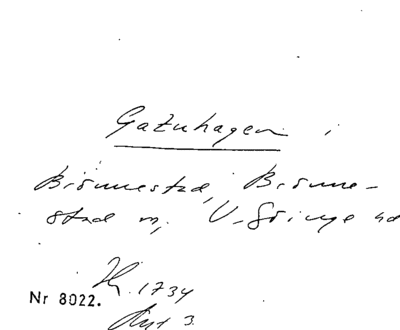 Gatuhagen i
Brönnestad, Brönne-
stad sn, V-Göinge hd
Nr 8022. 1734
Akt 3.